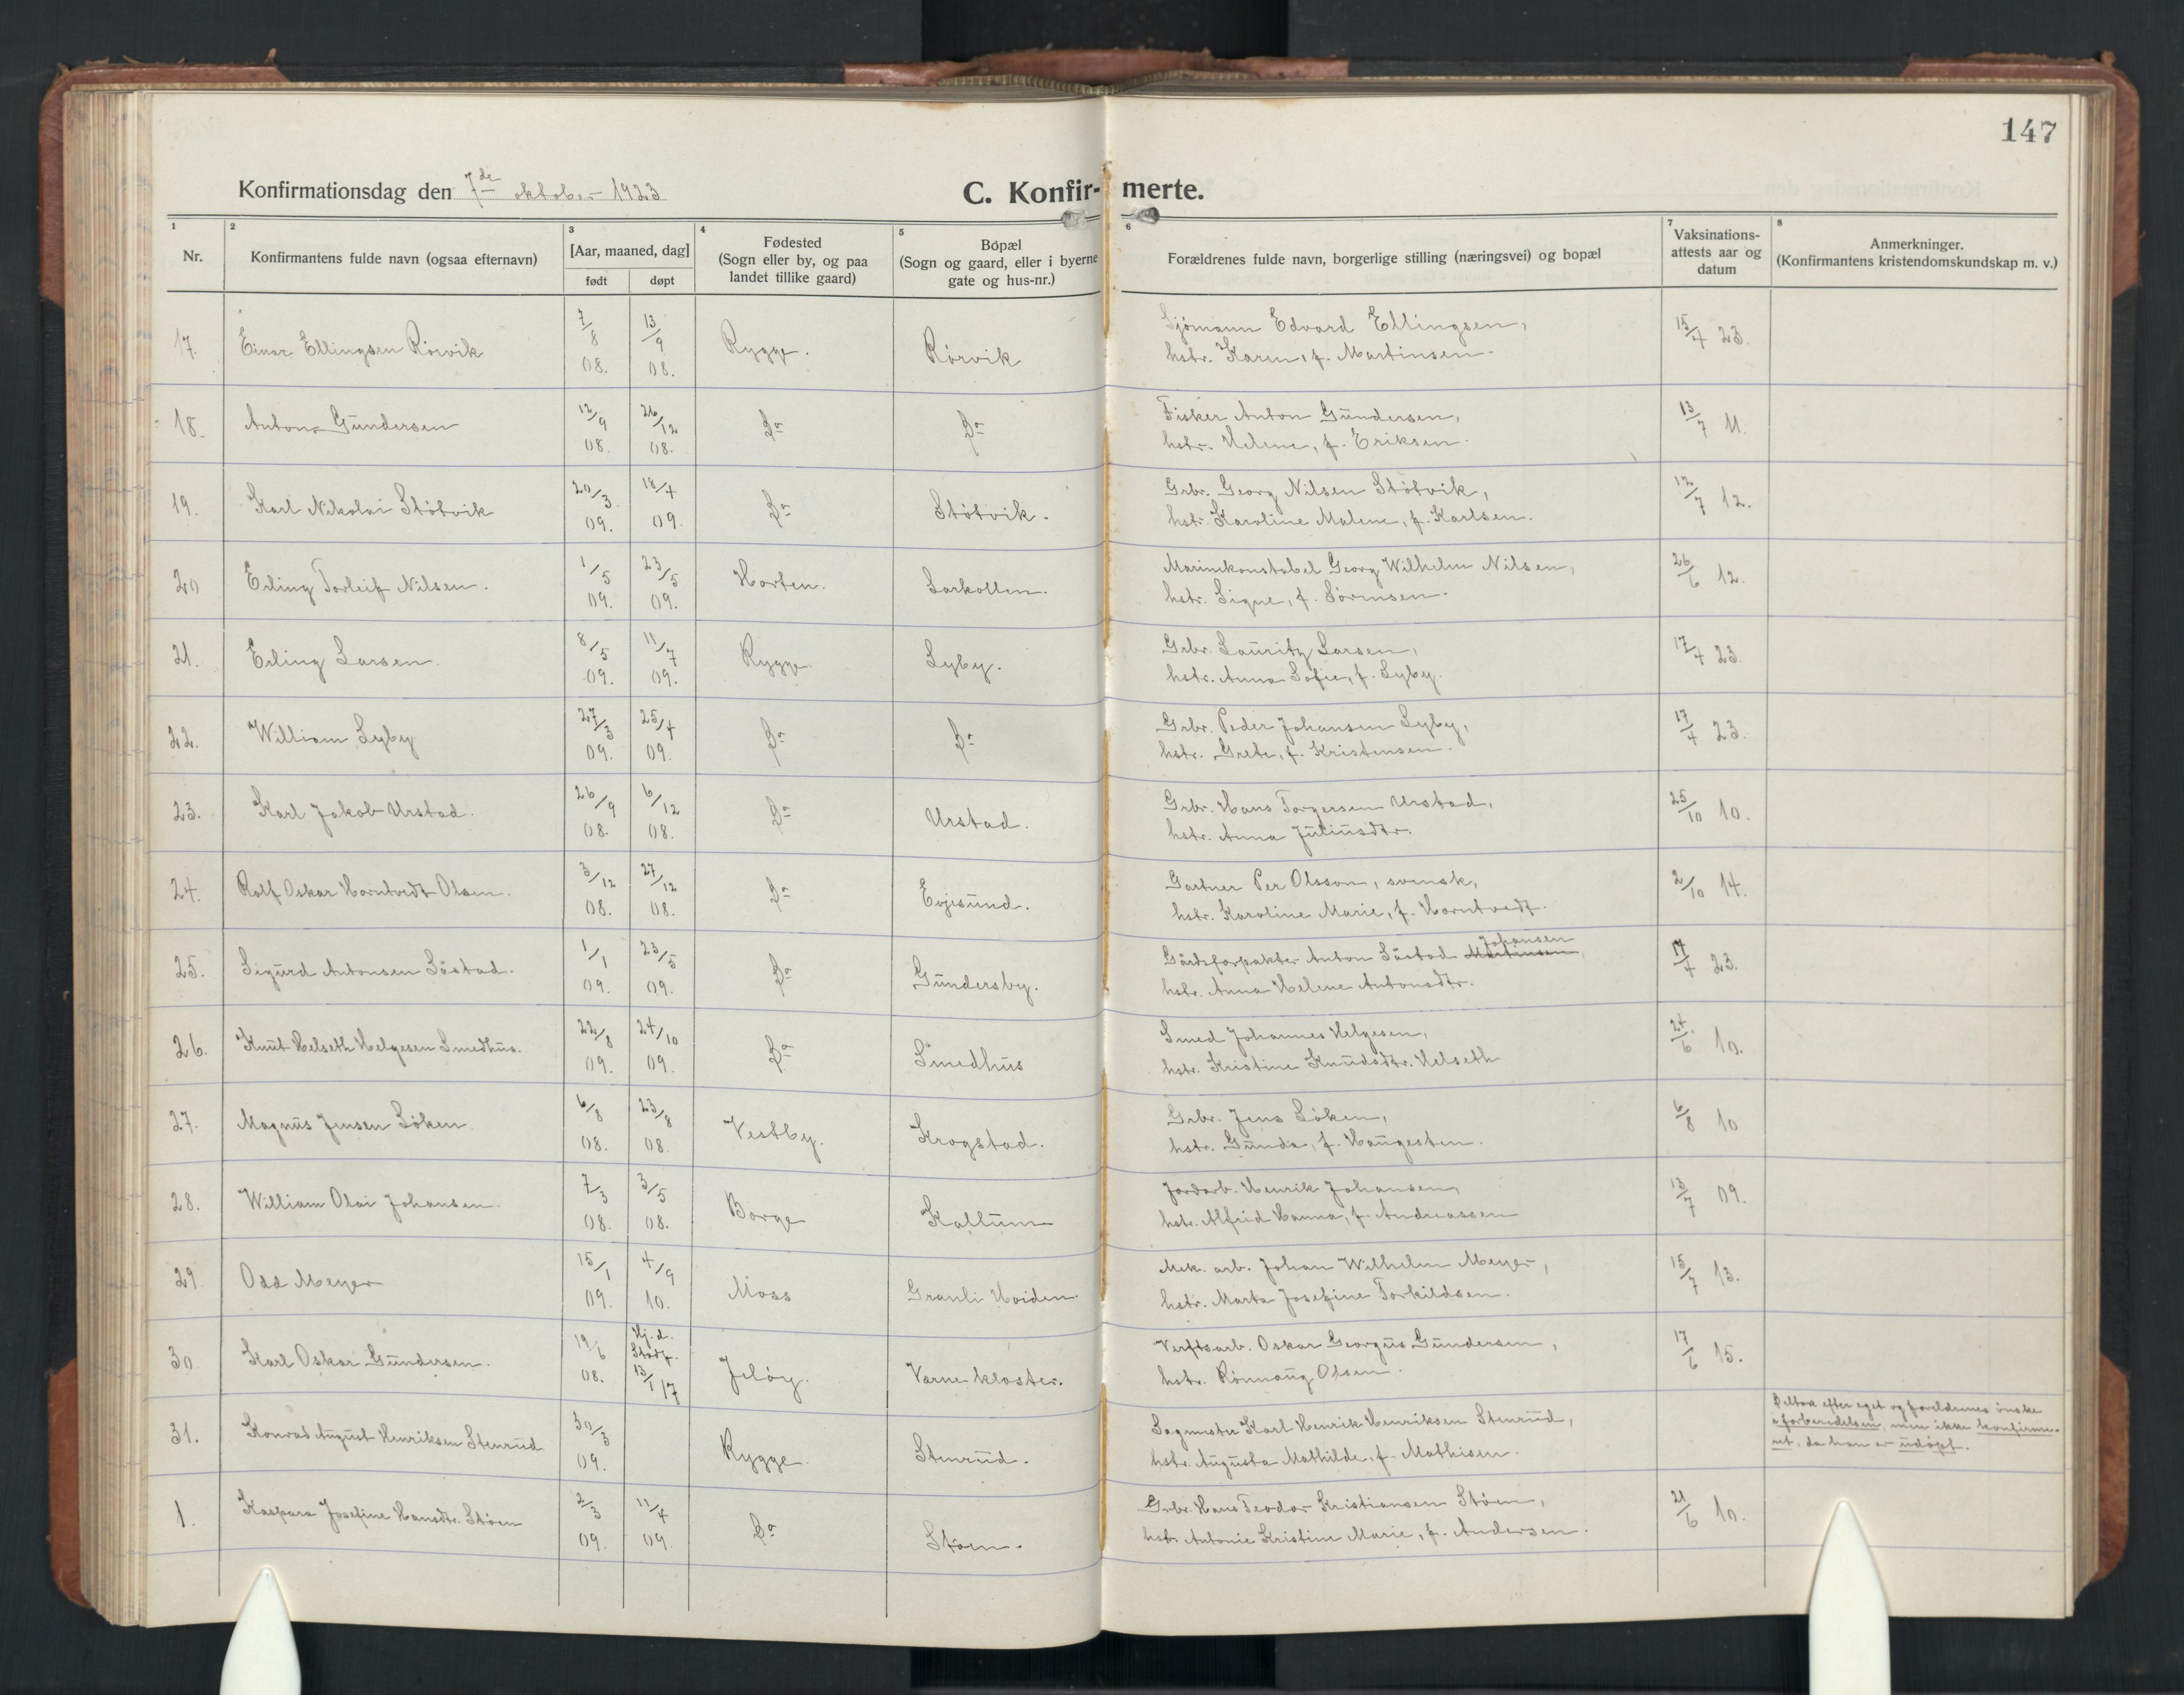 147
Konfirmationsdag den 7de oktober 1923
C. Konfir- merte.
1 2 3 4 5 6 7 8
Nr.
Konfirmantens fulde navn (ogsaa efternavn)
[Aar, maaned, dag]
født døpt
Fødested
(Sogn eller by, og paa
landet tillike gaard)
Bopæl
(Sogn og gaard, eller i byerne
gate og hus-nr.)
Forældrenes fulde navn, borgerlige stilling (næringsvei) og bopæl
Vaksinations-
attests aar og
datum
Anmerkninger.
(Konfirmantens kristendomskundskap m. v.)
17. Einar Ellingsen Rörvik 7/8 08. 13/9 08. Rygge. Rörvik Sjömann Edvard Ellingsen, 15/4 23.
hstr. Karen, f. Martinsen.
18. Anton Gundersen 12/9 08. 26/12 08. Do Do Fisker Anton Gundersen, 13/7 11.
hstr. Helene, f. Eriksen.
19. Karl Nikolai Stötvik 20/3 09. 18/4 09. Do Stötvik. Grbr. Georg Nilsen Stötvik, 12/7 12.
hstr. Karoline Malene, f. Karlsen.
20 Erling Torleif Nilsen. 1/5 09. 23/5 09. Horten. Larkollen. Marinekonstabel Georg Wilhelm Nilsen, 26/6 12.
hstr. Signe, f. Sörensen.
21. Erling Larsen. 8/5 09. 11/7 09. Rygge Lyby. Grbr. Lauritz Larsen, 17/4 23
hstr. Anna Sofie, f. Lyby.
22. William Lyby 27/3 09. 25/4 09. Do Do Grbr. Peder Johansen Lyby, 17/4 23.
hstr. Grete, f. Kristensen.
23. Karl Jakob Urstad. 26/9 08. 6/12 08. Do Urstad. Grbr. Hans Torgersen Urstad, 25/10 10.
hstr. Anna Juliusdtr.
24. Rolf Oskar Horntvedt Olsen. 3/12 08. 27/12 08. Do Evjesund. Gartner Per Olsson, svensk, 2/10 14.
hstr. Karoline Marie, f. Horntvedt.
25. Sigurd Antonsen Såstad. 1/1 09. 23/5 09. Do Gundersby. Gårdsforpakter Anton Såstad Martinsen Johansen, 17/4 23.
hstr. Anna Helene Antonsdtr.
26. Knut Helseth Helgesen Smedhus. 22/8 09. 24/10 09. Do Smedhus Smed Johannes Helgesen, 24/6 10.
hstr. Kristine Knudsdtr. Helseth
27. Magnus Jensen Löken 6/8 08. 23/8 08 Vestby. Krogstad. Grbr. Jens Löken, 6/8 10
hstr. Gunda, f. Haugesten.
28. William Olai Johansen. 7/3 08. 3/5 08. Borge Kallum Jordarb. Henrik Johansen, 13/7 09.
hstr. Alfrid Hanna, f. Andreassen
29. Odd Meyer 15/1 09. 4/9 10. Moss Granli Hoiden. Mek. arb. Johan Wilhelm Meyer, 15/7 13.
hstr. Marta Josefine Torkildsen.
30. Karl Oskar Gundersen. 19/6 08. Hj.d. Stadf. 13/1 17 Jelöy. Værne kloster. Verftsarb. Oskar Georgus Gundersen, 17/6 15.
hstr. Rönnaug Olsen.
31. Konrad August Henriksen Stenrud 30/3 09. Rygge. Stenrud. Sagmester Karl Henrik Henriksen Stenrud,
hstr. Augusta Mathilde, f. Mathisen.
Deltok efter eget og foreldrenes önske
i forberedelsen, men ikke konfirme-
rt, da han er udöpt.
1. Kaspara Josefine Hansdtr. Stöen 2/3 09. 11/4 09. Do Stöen. Grbr. Hans Teodor Kristiansen Stöen, 21/6 10.
hstr. Antonie Kristine Marie, f. Andersen.